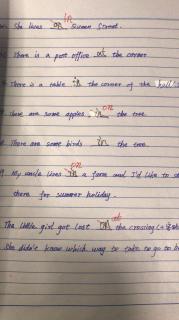 in
She lives on Sumen Street.
There is a post office at the corner
There is a table in the corner of the
on
There are some apples in the tree
There are some birds in the tree
on
My uncle lives in a farm and I'd like to
there for summer holiday.
at
The little girl got lost on the crossing
She didn't know which way to take to go to